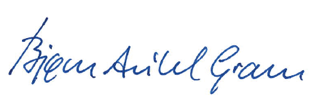 Bjørn Arild Gram